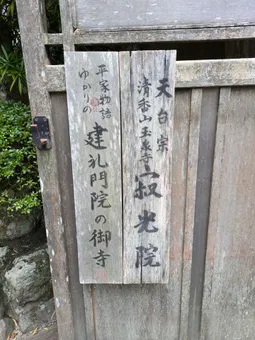 天台宗
清香山玉泉寺
寂光院
平家物語
ゆかりの
建礼門院の御寺